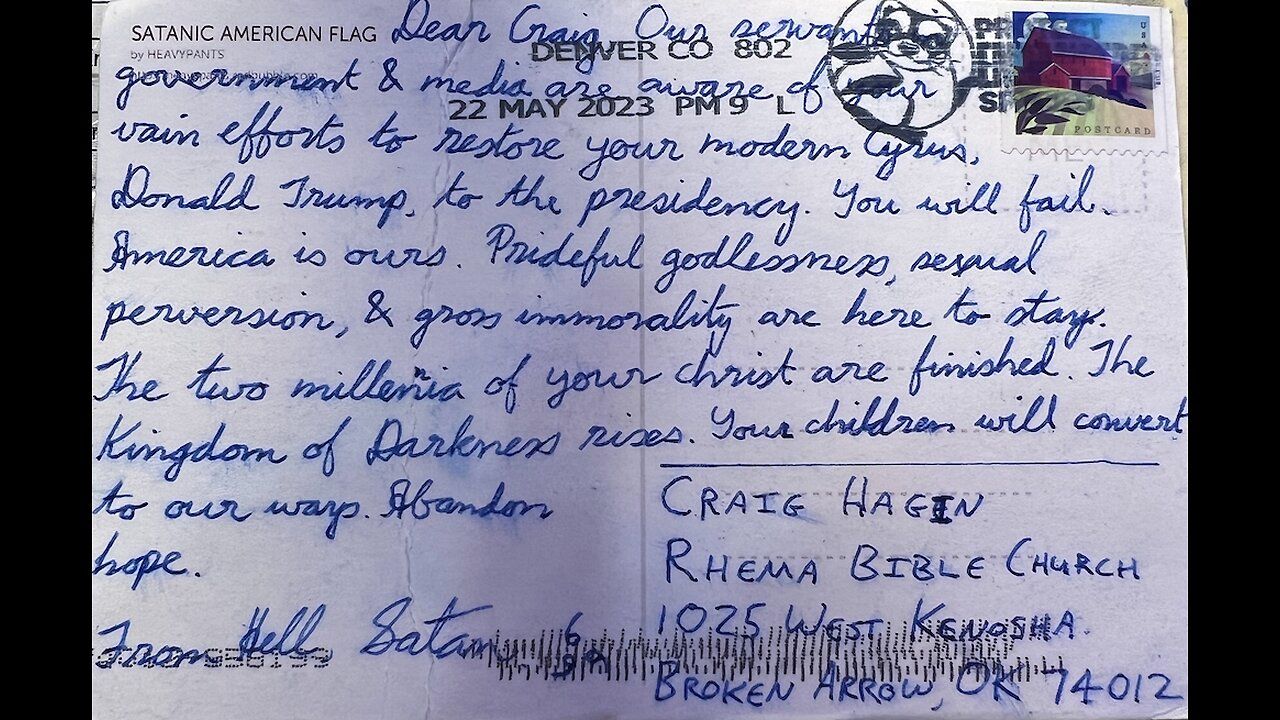 SATANIC AMERICAN FLAG
by HEAVYPANTS
DENVER CO 802
22 MAY 2023 PM 9 L
USA
POSTCARD
Dear Craig, Our servants
government & media are aware of your
vain efforts to restore your modern Cyrus,
Donald Trump, to the presidency. You will fail.
America is ours. Prideful godlessness, sexual
perversion, & gross immorality are here to stay.
The two millenia of your christ are finished. The
Kingdom of Darkness rises. Your children will convert
to our ways. Abandon
hope.
From Hell Satan
CRAIG HAGIN
RHEMA BIBLE CHURCH
1025 WEST KENOSHA
BROKEN ARROW, OK 74012